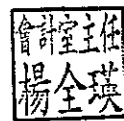 會計室主任
楊全瑛